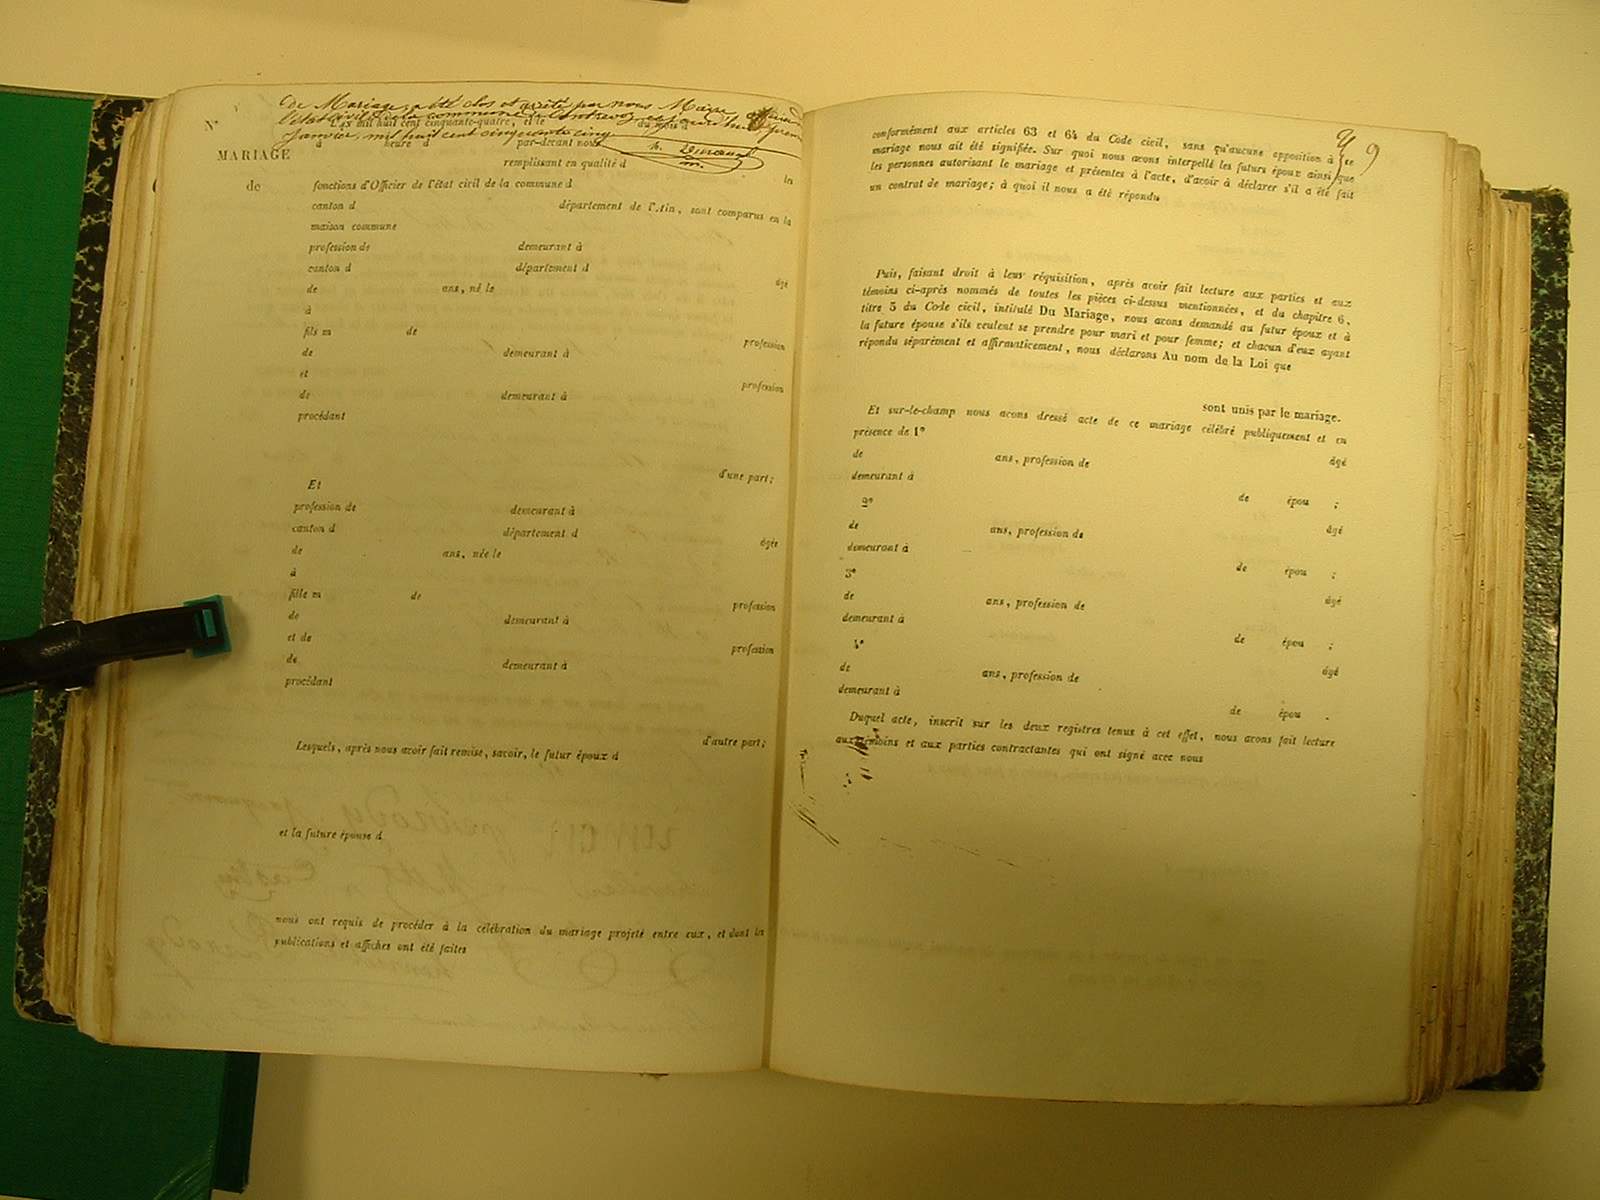 de Mariage, a été clos et arrêté par nous Maire
l'état civil de la commune de Contrevoz, ce jourd'hui premier
janvier, mil huit cent cinquante cinq
N°
L'an mil huit cent cinquante-quatre, et le du mois d
à heure d par-devant nous
MARIAGE
remplissant en qualité d les
de
fonctions d'Officier de l'état civil de la commune d
canton d département de l'Ain, sont comparus en la
maison commune
profession de demeurant à
canton d département d
de ans, né le âgé
à
fils m de profession
de demeurant à
et profession
de demeurant à
procédant
d'une part;
Et
profession de demeurant à
canton d département d
de ans, née le âgée
à
fille m de profession
de demeurant à
et de profession
de demeurant à
procédant
d'autre part;
Lesquels, après nous avoir fait remise, savoir, le futur époux d
et la future épouse d
nous ont requis de procéder à la célébration du mariage projeté entre eux, et dont les
publications et affiches ont été faites
9
conformément aux articles 63 et 64 du Code civil, sans qu'aucune opposition à ce
mariage nous ait été signifiée. Sur quoi nous avons interpellé les futurs époux ainsi que
les personnes autorisant le mariage et présentes à l'acte, d'avoir à déclarer s'il a été fait
un contrat de mariage; à quoi il nous a été répondu
Puis, faisant droit à leur réquisition, après avoir fait lecture aux parties et aux
témoins ci-après nommés de toutes les pièces ci-dessus mentionnées, et du chapitre 6,
titre 5 du Code civil, intitulé Du Mariage, nous avons demandé au futur époux et à
la future épouse s'ils veulent se prendre pour mari et pour femme; et chacun d'eux ayant
répondu séparément et affirmativement, nous déclarons Au nom de la Loi que
sont unis par le mariage.
Et sur-le-champ nous avons dressé acte de ce mariage célébré publiquement et en
présence de 1°
de ans, profession de âgé
demeurant à
de épou ;
2°
de ans, profession de âgé
demeurant à
de épou ;
3°
de ans, profession de âgé
demeurant à
de épou ;
4°
de ans, profession de âgé
demeurant à
de épou .
Duquel acte, inscrit sur les deux registres tenus à cet effet, nous avons fait lecture
aux témoins et aux parties contractantes qui ont signé avec nous